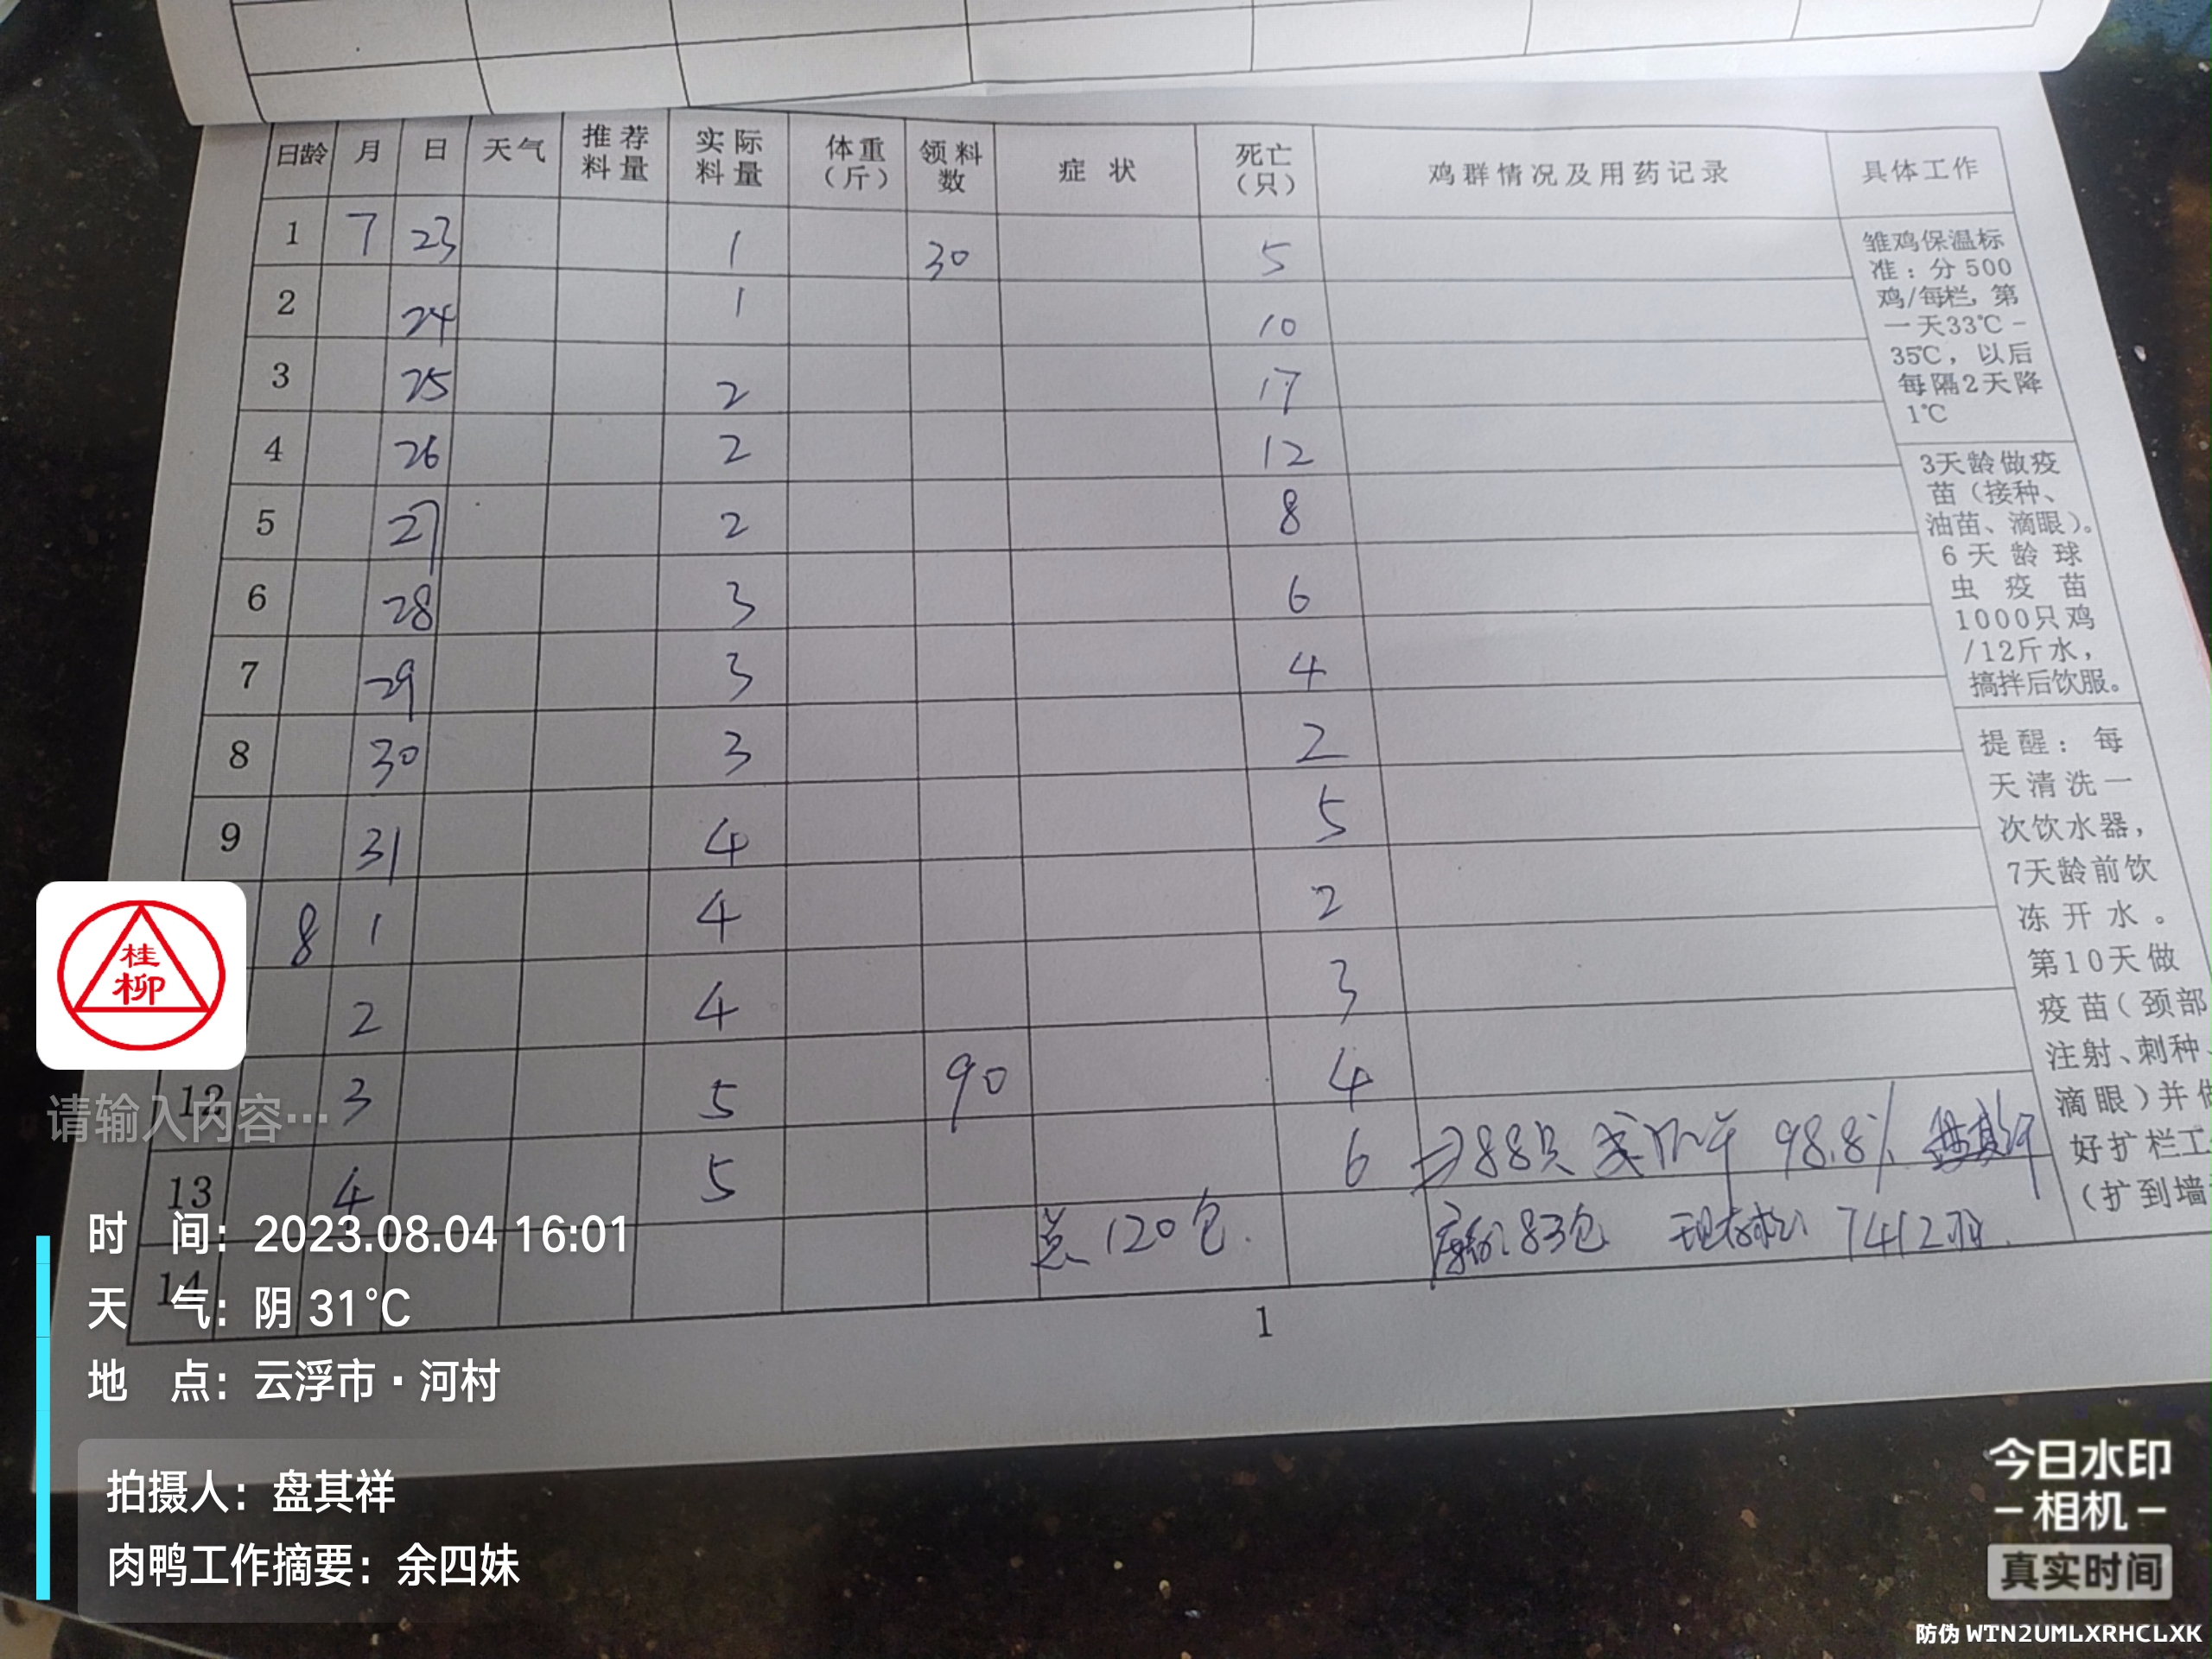 日龄 月 日 天气 推荐料量 实际料量 体重(斤) 领料数 症状 死亡(只) 鸡群情况及用药记录 具体工作
1 7 23 1 30 5
2 24 1 10
3 25 2 17
4 26 2 12
5 27 2 8
6 28 3 6
7 29 3 4
8 30 3 2
9 31 4 5
8 1 4 2
2 4 3
12 3 5 90 4
13 4 5 6 88只 98.8%
14 总 120包. 83包 现存 7412
雏鸡保温标
准：分500
鸡/每栏，第
一天33℃-
35℃，以后
每隔2天降
1℃
3天龄做疫
苗（接种、
油苗、滴眼）。
6天龄球
虫疫苗
1000只鸡
/12斤水，
搞拌后饮服。
提醒：每
天清洗一
次饮水器，
7天龄前饮
冻开水。
第10天做
疫苗（颈部
注射、刺种、
滴眼）并
好扩栏工
（扩到墙
1
桂
柳
请输入内容…
时 间：2023.08.04 16:01
天 气：阴 31℃
地 点：云浮市·河村
拍摄人：盘其祥
肉鸭工作摘要：余四妹
今日水印
-相机-
真实时间
防伪 WTN2UMLXRHCLXK